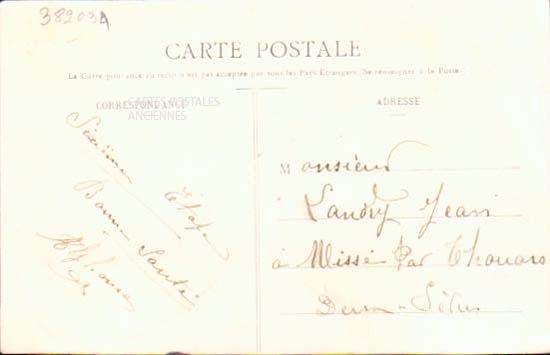 38203A
CARTE POSTALE
La Correspondance au recto n'est pas acceptée par tous les Pays Étrangers (Se renseigner à la Poste)
CORRESPONDANCE
CARTES POSTALES
ANCIENNES
ADRESSE
Sixième Etape
Bonne Santé
Monsieur
Landry Jean
à Missé Par Thouars
Deux-Sèvres